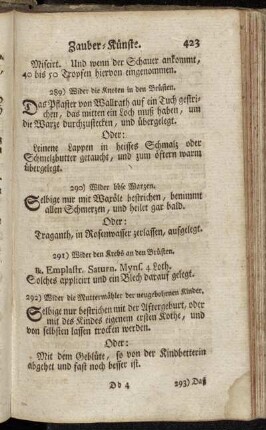 Zauber-Künste. 423
Misceirt. Und wenn der Schauer ankommt,
40 bis 50 Tropfen hiervon eingenommen.
289) Wider die Knoten in den Brüsten.
Das Pflaster von Wallrath auf ein Tuch gestri-
chen, das mitten ein Loch muß haben, um
die Warze durchzustecken, und übergelegt.
Oder:
Leinene Lappen in heisses Schmalz oder
Schmelzbutter getaucht, und zum öftern warm
übergelegt.
290) Wider böse Warzen.
Selbige nur mit Waxöle bestrichen, benimmt
allen Schmerzen, und heilet gar bald.
Oder:
Traganth, in Rosenwasser zerlassen, aufgelegt.
291) Wider den Krebs an den Brüsten.
℞. Emplastr. Saturn. Myns. 4 Loth.
Solches applicirt und ein Blech darauf gelegt.
292) Wider die Muttermähler der neugebohrnen Kinder.
Selbige nur bestrichen mit der Aftergeburt, oder
mit des Kindes eigenem ersten Kothe, und
von selbsten lassen trocken werden.
Oder:
Mit dem Geblüte, so von der Kindbetterin
abgehet und fast noch besser ist.
Dd 4 293) Daß